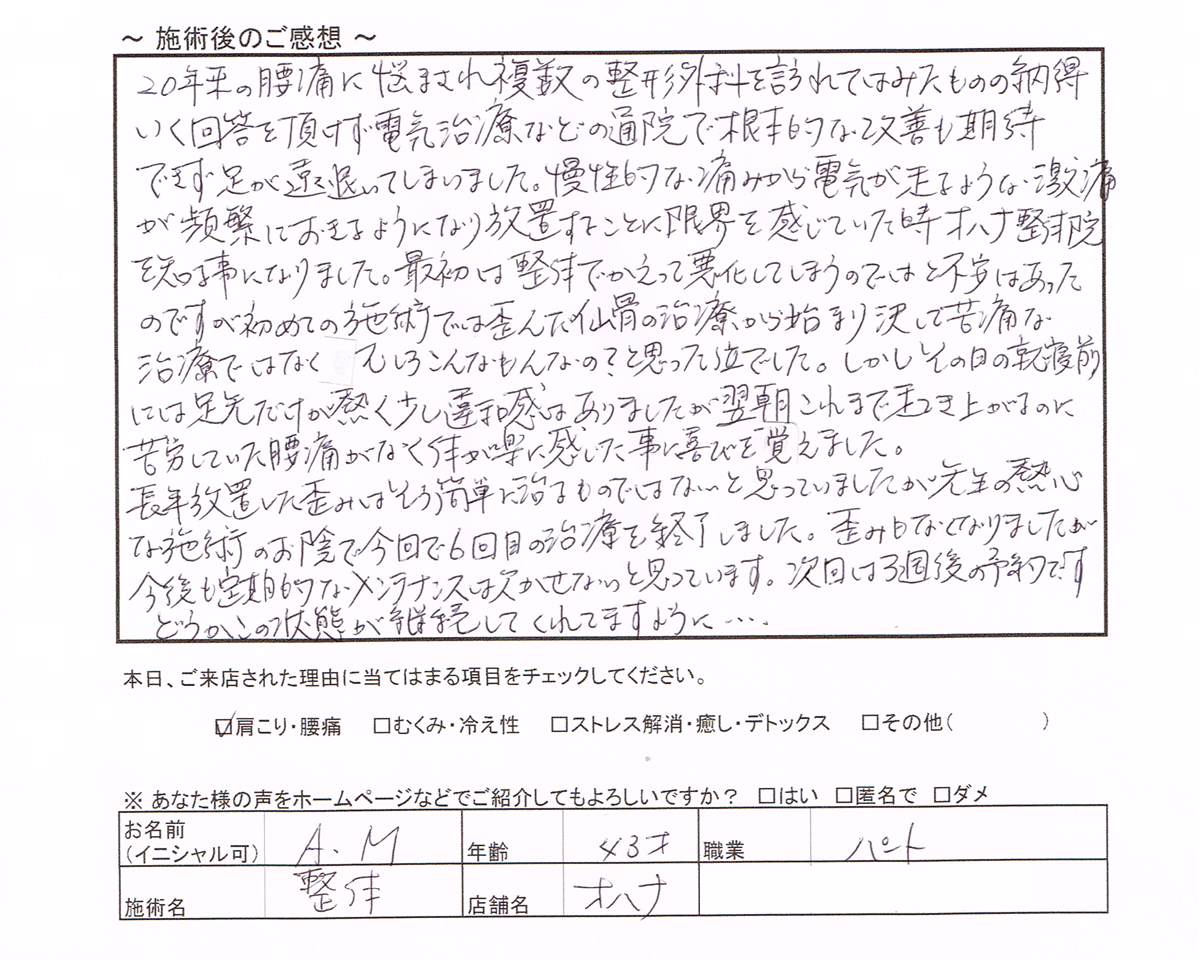 ～ 施術後のご感想 ～
20年来の腰痛に悩まされ複数の整形外科を訪れてはみたものの納得
いく回答を頂けず電気治療などの通院で根本的な改善も期待
できず足が遠退いてしまいました。慢性的な痛みから電気が走るような激痛
が頻繁におきるようになり放置することに限界を感じていた時オハナ整体院
を知る事になりました。最初は整体でかえって悪化してしまうのではと不安はあった
のですが初めての施術では歪んだ仙骨の治療から始まり決して苦痛な
治療ではなく むしろこんなもんなの？と思った位でした。しかしその日の就寝前
には足先だけが熱く少し違和感はありましたが翌朝これまで起き上がるのに
苦労していた腰痛がなく体が楽に感じた事に喜びを覚えました。
長年放置した歪みはそう簡単に治るものではないと思っていましたが先生の熱心
な施術のお陰で今回で6回目の治療を終了しました。歪みもなくなりましたが
今後も定期的なメンテナンスは欠かせないと思っています。次回は3週後の予約です
どうかこの状態が継続してくれてますように・・・・
本日、ご来店された理由に当てはまる項目をチェックしてください。
☑肩こり・腰痛 □むくみ・冷え性 □ストレス解消・癒し・デトックス □その他( )
※ あなた様の声をホームページなどでご紹介してもよろしいですか？ □はい □匿名で □ダメ
お名前
(イニシャル可) A.M 年齢 43才 職業 パート
施術名 整体 店舗名 オハナ